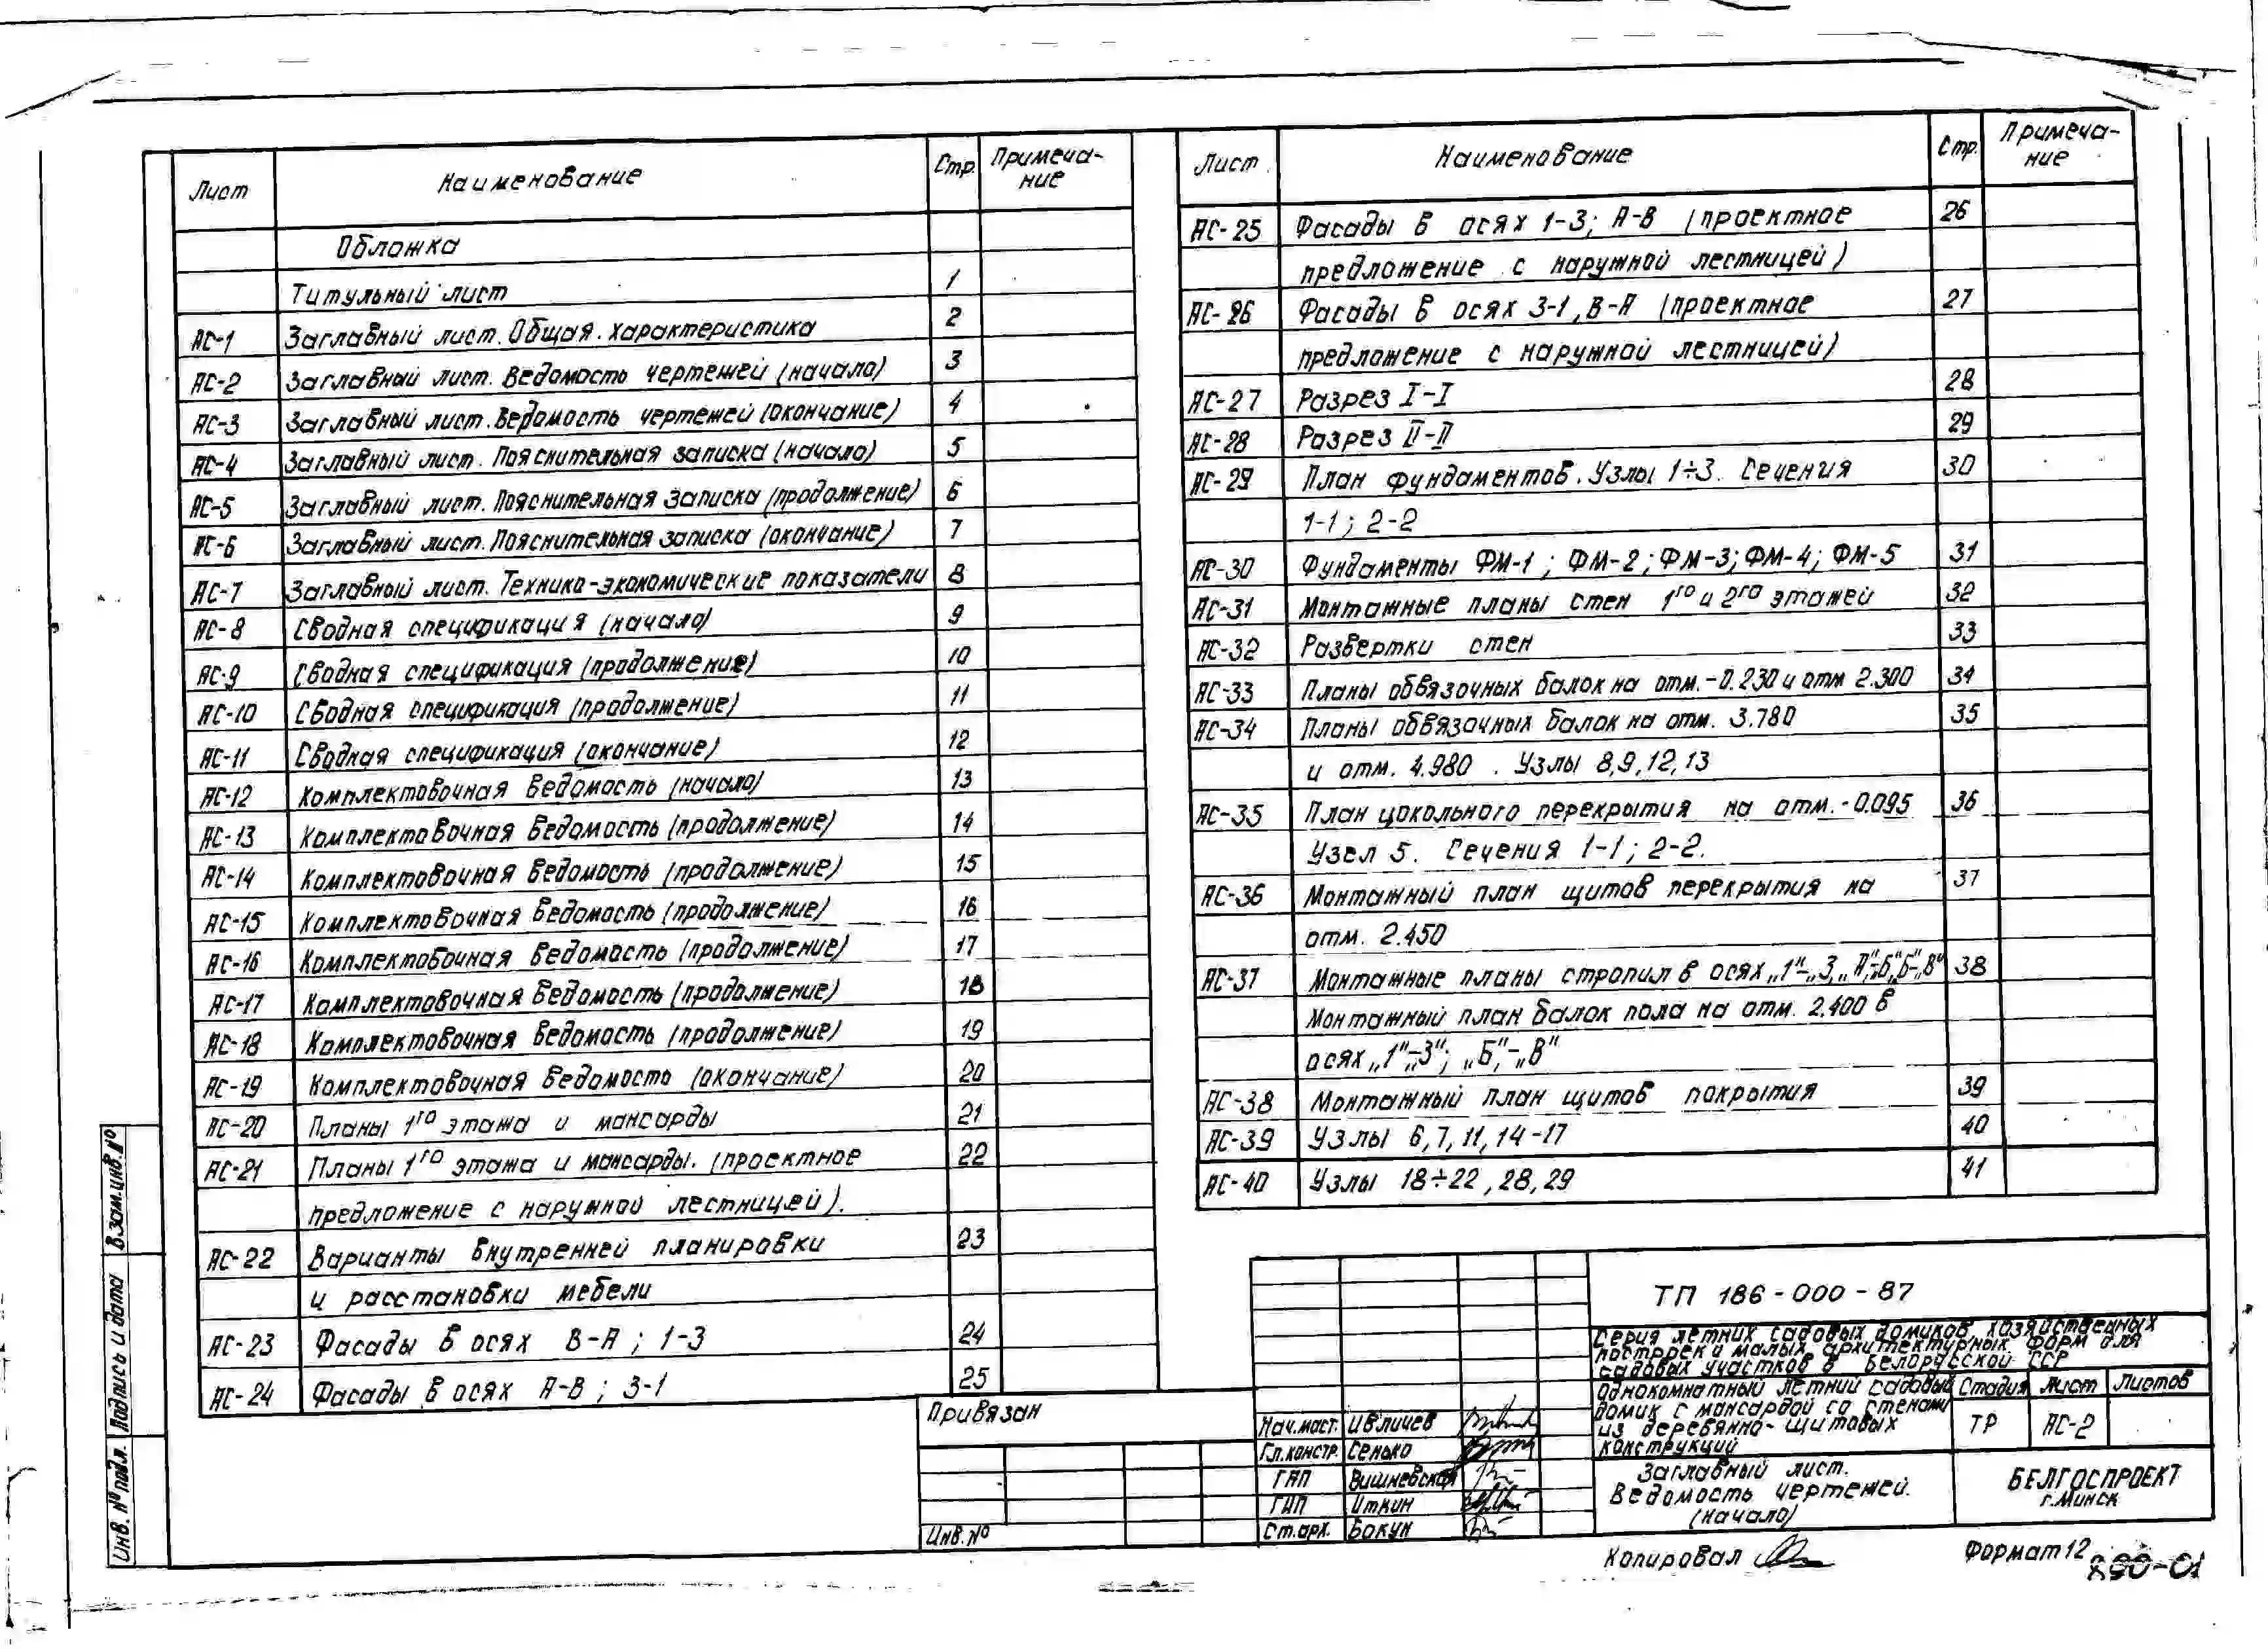 Лист Наименование Стр. Примеча-
ние
Обложка
Титульный лист 1
АС-1 Заглавный лист. Общая характеристика 2
АС-2 Заглавный лист. Ведомость чертежей (начало) 3
АС-3 Заглавный лист. Ведомость чертежей (окончание) 4
АС-4 Заглавный лист. Пояснительная записка (начало) 5
АС-5 Заглавный лист. Пояснительная записка (продолжение) 6
АС-6 Заглавный лист. Пояснительная записка (окончание) 7
АС-7 Заглавный лист. Технико-экономические показатели 8
АС-8 Сводная спецификация (начало) 9
АС-9 Сводная спецификация (продолжение) 10
АС-10 Сводная спецификация (продолжение) 11
АС-11 Сводная спецификация (окончание) 12
АС-12 Комплектовочная ведомость (начало) 13
АС-13 Комплектовочная ведомость (продолжение) 14
АС-14 Комплектовочная ведомость (продолжение) 15
АС-15 Комплектовочная ведомость (продолжение) 16
АС-16 Комплектовочная ведомость (продолжение) 17
АС-17 Комплектовочная ведомость (продолжение) 18
АС-18 Комплектовочная ведомость (продолжение) 19
АС-19 Комплектовочная ведомость (окончание) 20
АС-20 Планы 1го этажа и мансарды 21
АС-21 Планы 1го этажа и мансарды. (проектное 22
предложение с наружной лестницей).
АС-22 Варианты внутренней планировки 23
и расстановки мебели
АС-23 Фасады в осях В-А ; 1-3 24
АС-24 Фасады в осях А-В ; 3-1 25
Лист Наименование Стр. Примеча-
ние
АС-25 Фасады в осях 1-3; А-В (проектное 26
предложение с наружной лестницей)
АС-26 Фасады в осях 3-1, В-А (проектное 27
предложение с наружной лестницей)
АС-27 Разрез I-I 28
АС-28 Разрез II-II 29
АС-29 План фундаментов. Узлы 1÷3. Сечения 30
1-1 ; 2-2
АС-30 Фундаменты ФМ-1 ; ФМ-2 ; ФМ-3; ФМ-4; ФМ-5 31
АС-31 Монтажные планы стен 1го и 2го этажей 32
АС-32 Развертки стен 33
АС-33 Планы обвязочных балок на отм.-0.230 и отм 2.300 34
АС-34 Планы обвязочных балок на отм. 3.780 35
и отм. 4.980 . Узлы 8,9,12,13
АС-35 План цокольного перекрытия на отм.-0.095 36
Узел 5. Сечения 1-1 ; 2-2.
АС-36 Монтажный план щитов перекрытия на 37
отм. 2.450
АС-37 Монтажные планы стропил в осях „1"-„3, „А"-„Б", Б"-„В" 38
Монтажный план балок пола на отм. 2.400 в
осях „1"-„3"; „Б"-„В"
АС-38 Монтажный план щитов покрытия 39
АС-39 Узлы 6,7,11,14-17 40
АС-40 Узлы 18÷22, 28, 29 41
Взам.инв.№
Подпись и дата
Инв. № подл.
Привязан
Инв.№
ТП 186-000-87
Серия летних садовых домиков, хозяйственных
построек и малых архитектурных форм для
садовых участков в Белорусской ССР
Однокомнатный летний садовый
домик с мансардой со стенами
из деревянно-щитовых
конструкций
Стадия Лист Листов
ТР АС-2
Нач.маст. Ивличев
Гл.констр. Сенько
ГАП Вишневская
ГИП Иткин
Ст.арх. Бакун
Заглавный лист.
Ведомость чертежей.
(начало)
БЕЛГОСПРОЕКТ
г.Минск
Копировал
Формат 12
890-01